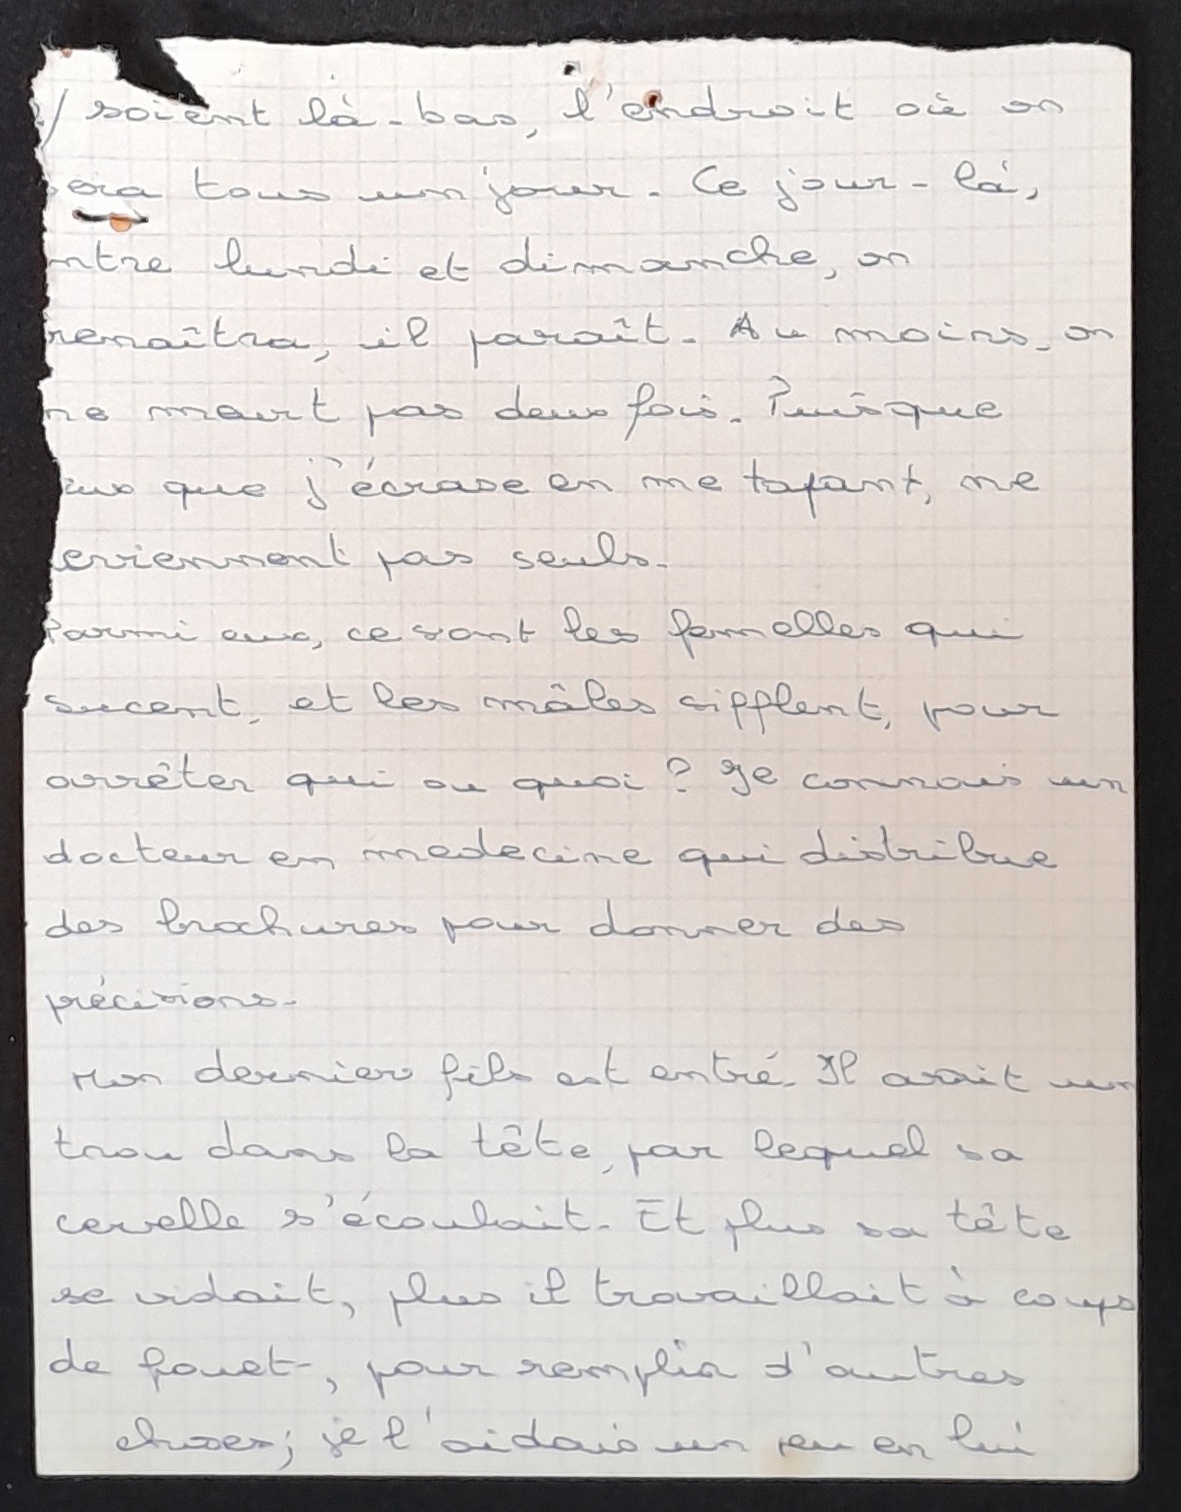 / soient là-bas, l'endroit où on
sera tous un jour. Ce jour-là,
ntre lundi et dimanche, on
renaîtra, il paraît. Au moins, on
ne meurt pas deux fois. Puisque
que j'écrase en me tapant, ne
eviennent pas seuls.
Parmi eux, ce sont les femelles qui
sucent, et les mâles sifflent, pour
arrêter qui ou quoi ? Je connais un
docteur en medecine qui distribue
des brochures pour donner des
précisions.
Mon dernier fils est entré. Il avait un
trou dans la tête, par lequel sa
cervelle s'écoulait. Et plus sa tête
se vidait, plus il travaillait à coups
de fouet, pour remplir d'autres
choses ; je l'aidais un peu en lui